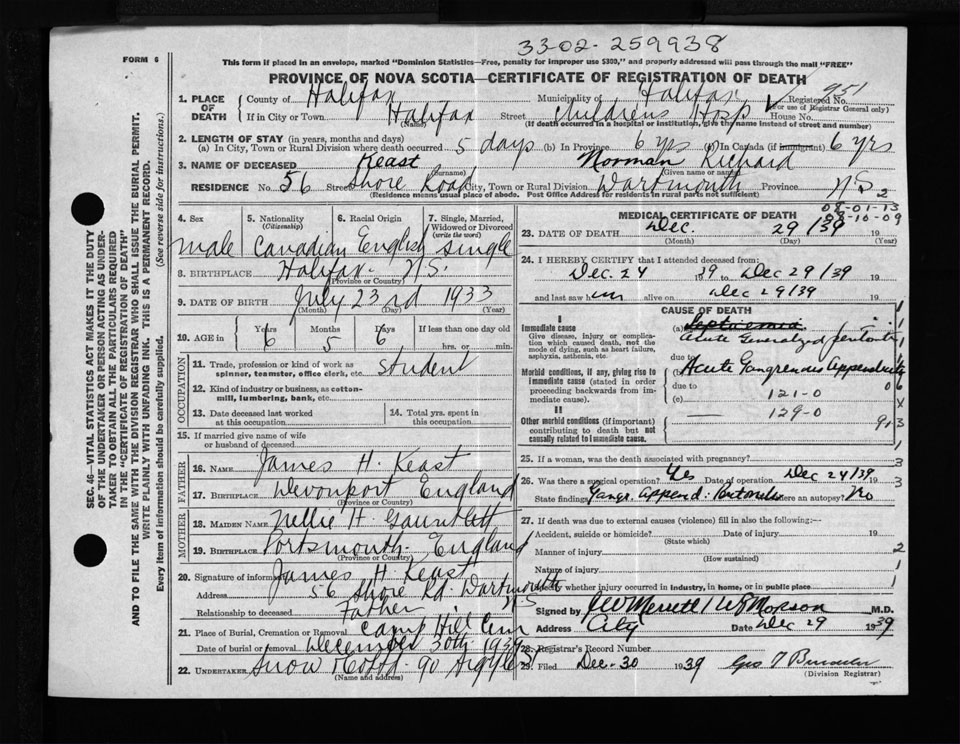 33-02-259938
FORM 6
This form if placed in an envelope, marked "Dominion Statistics—Free, penalty for improper use $300," and properly addressed will pass through the mail "FREE"
PROVINCE OF NOVA SCOTIA—CERTIFICATE OF REGISTRATION OF DEATH
1. PLACE OF DEATH County of Halifax Municipality of Halifax Registered No. 951
(For use of Registrar General only)
If in City or Town Halifax Street Childrens Hosp House No.
(Name) (If death occurred in a hospital or institution, give the name instead of street and number)
2. LENGTH OF STAY (in years, months and days)
(a) In City, Town or Rural Division where death occurred 5 days (b) In Province 6 yrs (c) In Canada (if immigrant) 6 yrs
3. NAME OF DECEASED Keast Norman Richard
(Surname) (Given name or names)
RESIDENCE No. 56 Street Shore Road City, Town or Rural Division Dartmouth Province N.S. 2
(Residence means usual place of abode. Post Office Address for rural parts not sufficient)
4. Sex male
5. Nationality (Citizenship) Canadian
6. Racial Origin English
7. Single, Married, Widowed or Divorced (write the word) Single
8. BIRTHPLACE Halifax - N.S.
(Province or Country)
9. DATE OF BIRTH July 23rd 1933
(Month) (Day) (Year)
10. AGE in Years 6 Months 5 Days 6 If less than one day old hrs. or min.
OCCUPATION
11. Trade, profession or kind of work as spinner, teamster, office clerk, etc. Student
12. Kind of industry or business, as cotton-mill, lumbering, bank, etc.
13. Date deceased last worked at this occupation
14. Total yrs. spent in this occupation
15. If married give name of wife or husband of deceased
FATHER
16. NAME James H. Keast
17. BIRTHPLACE Devonport England
(Province or Country)
MOTHER
18. MAIDEN NAME Nellie H. Gauntlett
19. BIRTHPLACE Portsmouth - England
(Province or Country)
20. Signature of informant James H. Keast
Address 56 Shore Rd. Dartmouth N.S.
Relationship to deceased Father
21. Place of Burial, Cremation or Removal Camp Hill Cem
Date of burial or removal December 30th 1939
22. UNDERTAKER Snow & Co Ltd - 90 Argyle St
(Name and address)
08-01-13
08-10-09
MEDICAL CERTIFICATE OF DEATH
23. DATE OF DEATH Dec. 29/39 19
(Month) (Day) (Year)
24. I HEREBY CERTIFY that I attended deceased from:
Dec. 24 1939 to Dec 29/39 19
and last saw him alive on Dec 29/39 19
CAUSE OF DEATH
I
Immediate cause
Give disease, injury or complication which caused death, not the mode of dying, such as heart failure, asphyxia, asthenia, etc.
(a) Septicemia
Acute Generalized peritonitis
due to
Morbid conditions, if any, giving rise to immediate cause (stated in order proceeding backwards from immediate cause).
(b) Acute Gangrenous Appendicitis
due to
(c) 121-0
129-0
II
Other morbid conditions (if important) contributing to death but not causally related to immediate cause.
25. If a woman, was the death associated with pregnancy?
26. Was there a surgical operation? Yes Date of operation Dec 24/39
State findings Gangr. Append: Peritonitis Was there an autopsy? No
27. If death was due to external causes (violence) fill in also the following:—
Accident, suicide or homicide? Date of injury 19
(State which)
Manner of injury
(How sustained)
Nature of injury
Specify whether injury occurred in industry, in home, or in public place
Signed by M.D.
Address City Date Dec 29 1939
28. Registrar's Record Number
29. Filed Dec-30 1939 Geo T
(Division Registrar)
SEC. 46—VITAL STATISTICS ACT MAKES IT THE DUTY
OF THE UNDERTAKER OR PERSON ACTING AS UNDER-
TAKER TO OBTAIN ALL THE PARTICULARS REQUIRED
IN THE "CERTIFICATE OF REGISTRATION OF DEATH"
AND TO FILE THE SAME WITH THE DIVISION REGISTRAR WHO SHALL ISSUE THE BURIAL PERMIT.
WRITE PLAINLY WITH UNFADING INK. THIS IS A PERMANENT RECORD.
Every item of information should be carefully supplied. (See reverse side for instructions.)